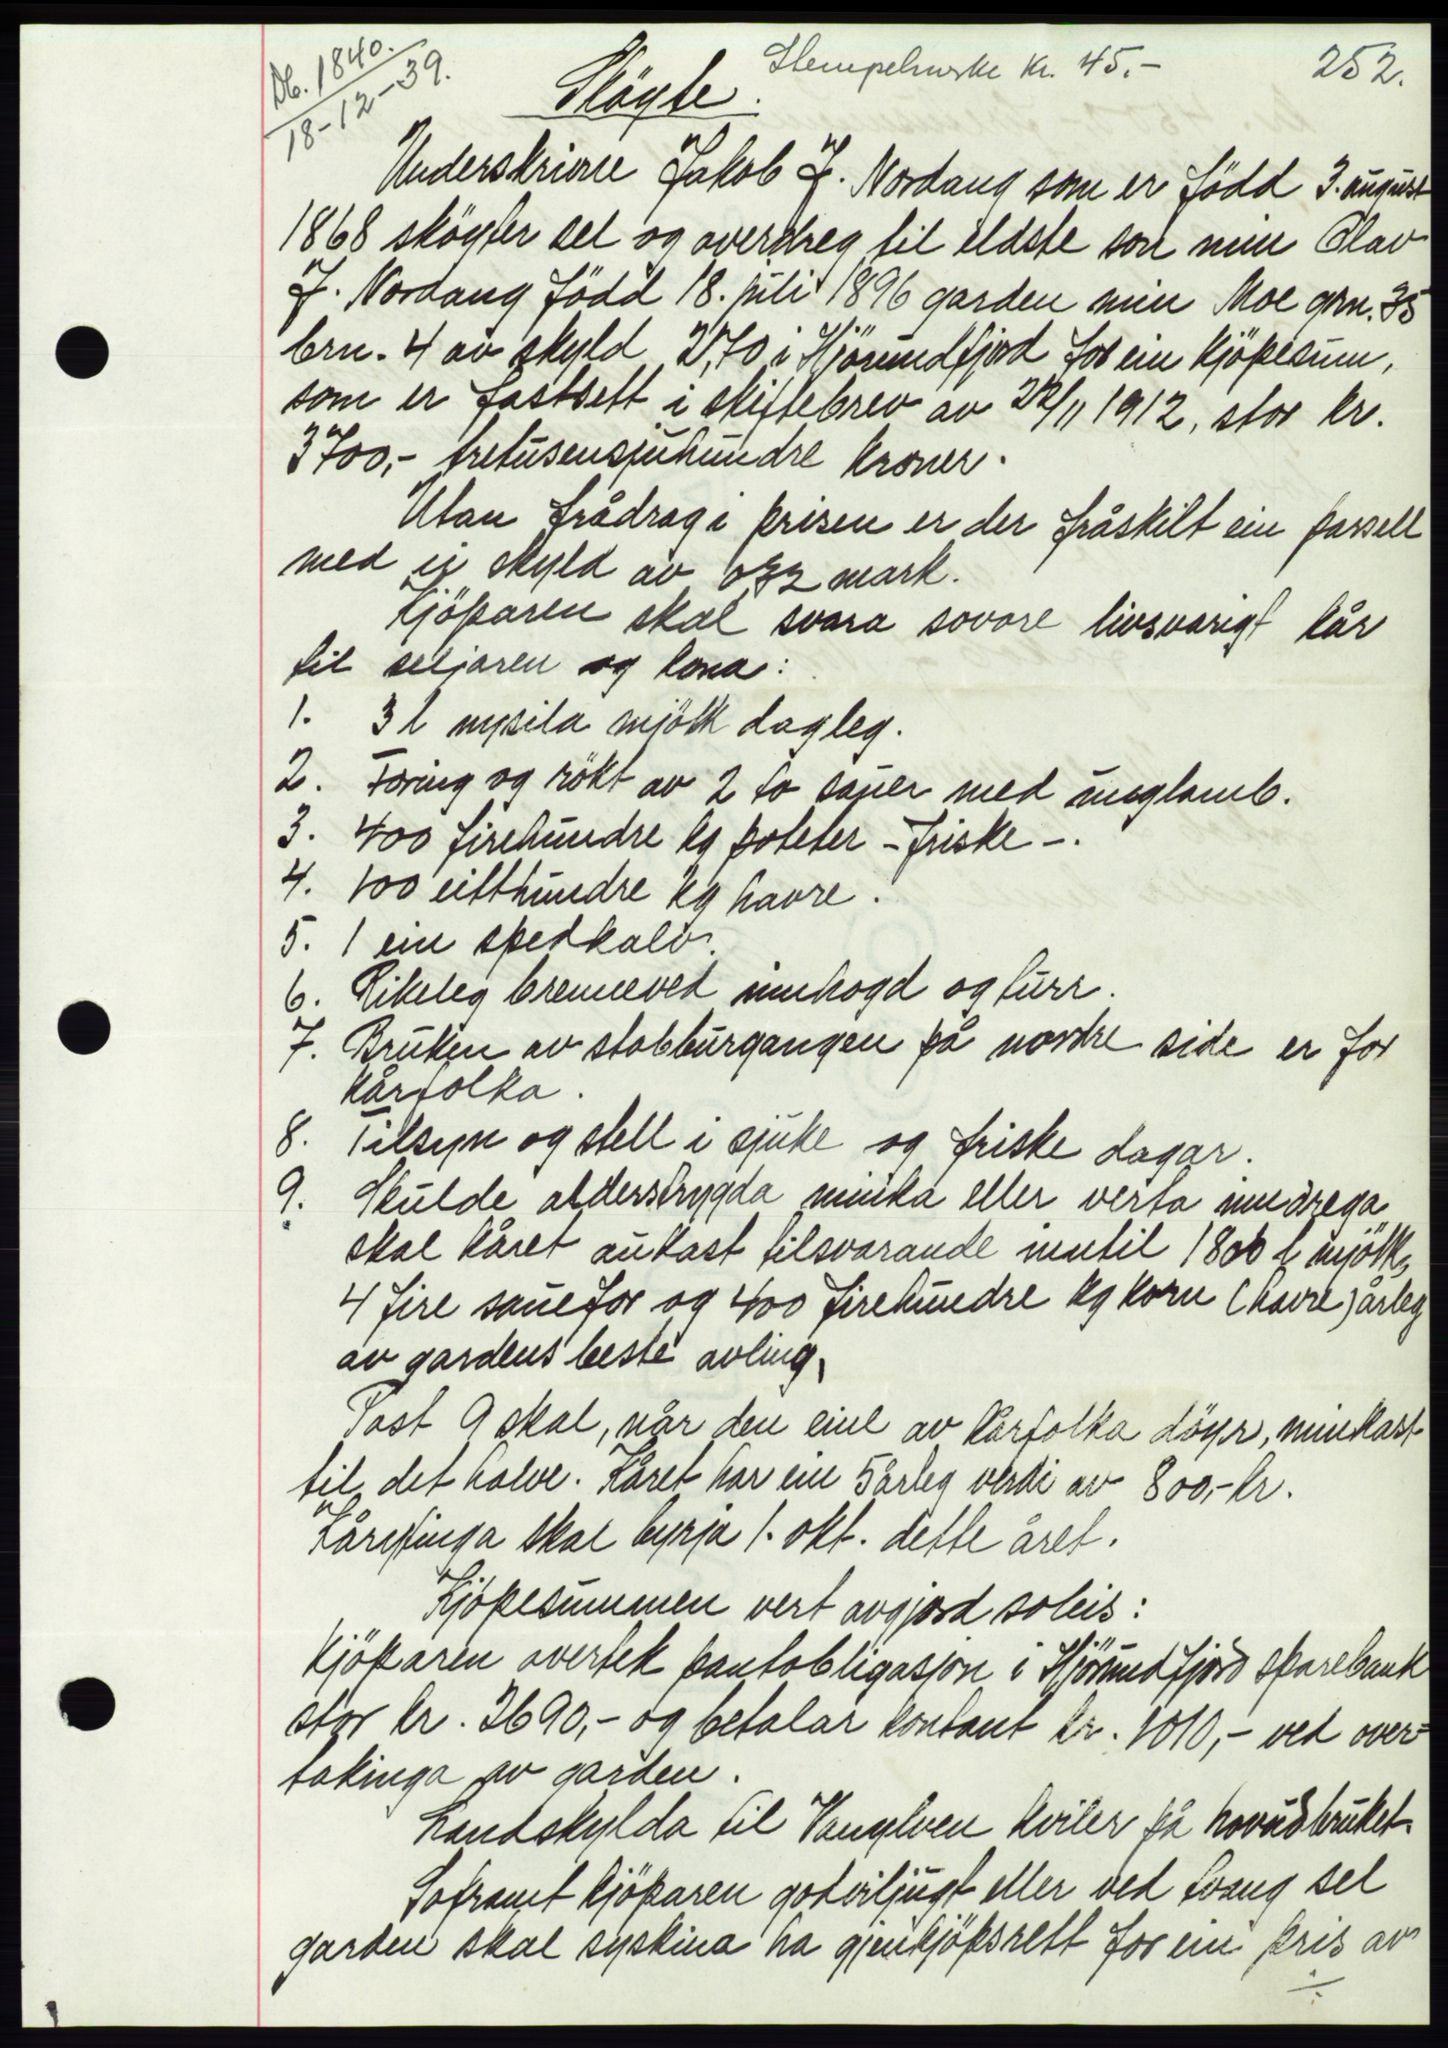 Db. 1840.
18-12-39.
Stempelmerke kr. 45.-
252.
Skøyte.
Underskrivne Jakob J. Nordang som er född 3. august
1868 sköyter sel og overdreg til eldste son min Olav
J. Nordang född 18. juli 1896 garden min Moe grn. 35
brn. 4 av skyld 2,70 i Hjörundfjord for ein kjöpesum,
som er fastsett i skiftebrev av 22/11 1912, stor kr.
3700,- tretusensjuhundre kroner.
Utan frådrag i prisen er der fråskilt ein parsell
med ei skyld av mark.
Kjöparen skal svara sovore livsvarigt kår
til seljaren og kona:
1. 3 l nysila mjölk dagleg.
2. Foring og rökt av 2 to sauer med unglamb.
3. 400 firehundre kg poteter - friske -.
4. 100 eitthundre kg havre.
5. 1 ein spedkalv.
6. Rikeleg brenneved innhogd og turr.
7. Bruken av stabburgangen på nordre side er for
kårfolka.
8. Tilsyn og stell i sjuke og friske dagar.
9. Skulde alderstrygda minka eller verta inndrega
skal kåret aukast tilsvarande inntil 1800 l mjölk,
4 fire sauefor og 400 firehundre kg korn (havre) årleg
av gardens beste avling.
Post 9 skal, når den eine av kårfolka döyr, minkast
til det halve. Kåret har ein 5årleg verdi av 800,- kr.
Kårytinga skal byrja 1. okt. dette året.
Kjöpesummen vert avgjord soleis:
Kjöparen overtek pantobligasjon i Hjörundfjord sparebank
stor kr. 2690,- og betalar kontant kr. 1010,- ved over-
takinga av garden.
Landskylda til Vanylven kviler på hovudbruket.
Soframt kjöparen godviljugt eller ved tvang sel
garden skal syskina ha gjenkjöpsrett for ein pris av